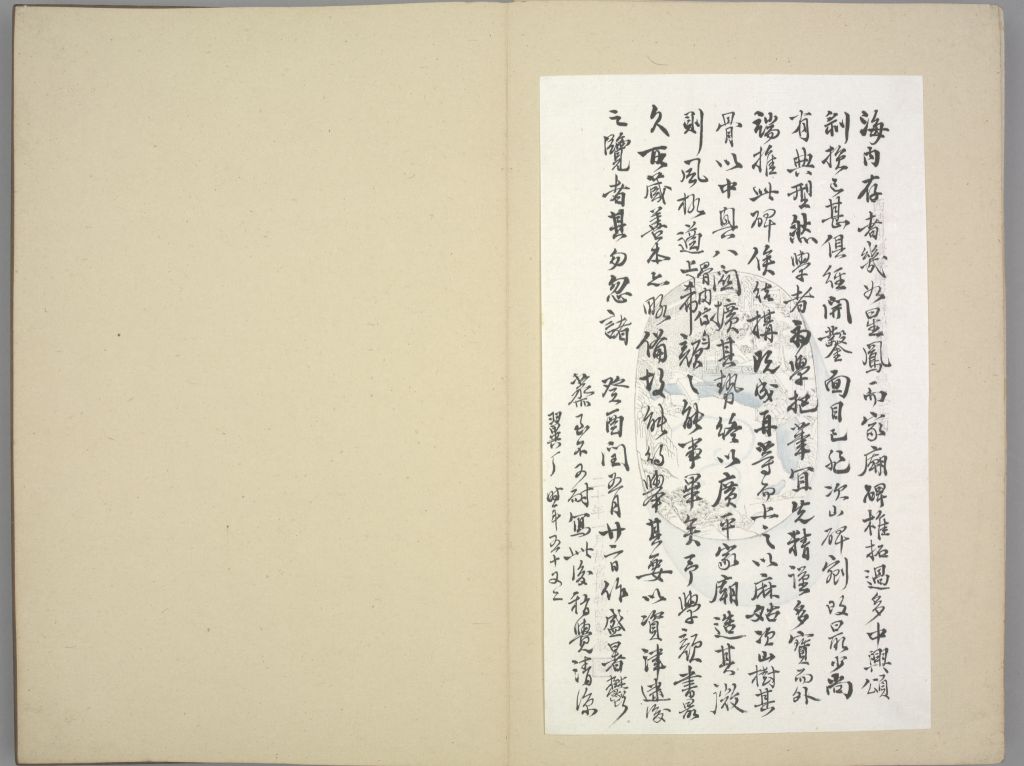 海内存者幾如星鳳而家廟碑椎拓過多中興頌
剝損已甚俱經開鑿面目已非次山碑剜改最少尚
有典型然學者初學把筆宜先精謹多寶而外
端推此碑俟結構既成再等而上之以麻姑次山樹其
骨以中興八關擴其勢終以廣平家廟造其微
則風格遒上骨肉停勻希顏之能事畢矣予學顏書最
久所藏善本亦略備故能約舉其要以資津逮後
之覽者其勿忽諸
癸酉閏五月廿二日作盛暑鬱
蒸至不可耐寫此後稍覺清涼
翼厂時年五十又三